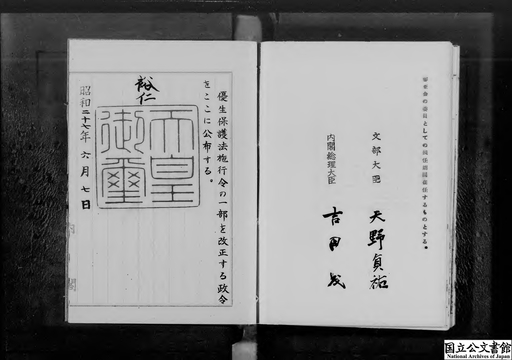 文部大臣 天野貞祐
内閣総理大臣 吉田茂
優生保護法施行令の一部を改正する政令
をここに公布する。
裕仁
天皇御璽
昭和二十七年六月七日
国立公文書館
National Archives of Japan